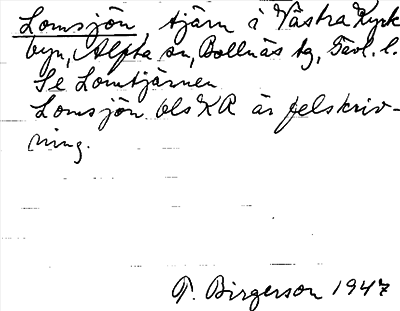 Lomsjön tjärn i Västra Kyrk
byn, Alfta sn, Bollnäs tg, Gävl. l.
Se Lomtjärnen
Lomsjön bls KA är felskriv-
ning.
T. Birgerson 1947